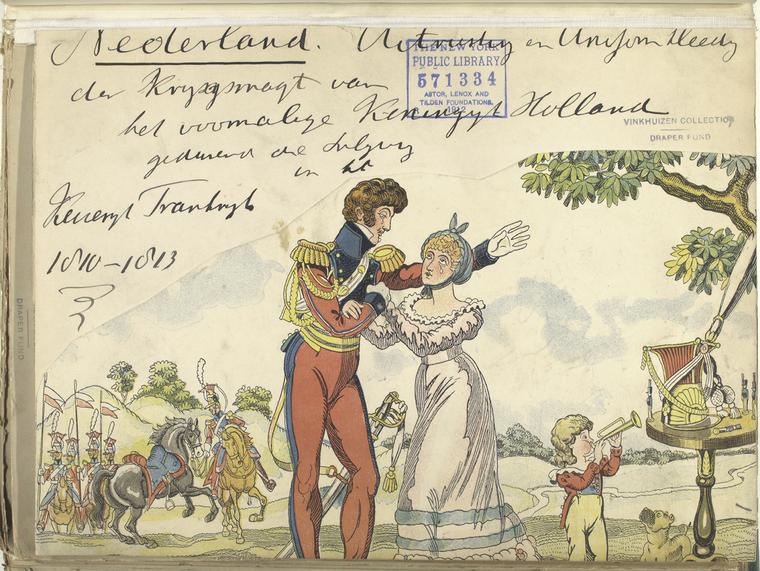 Nederland. Uitrusting en Uniform Kleedy
der Krijgsmagt van
het voormalige Koningryk Holland
gedurend de Inlyving
in het
Keizeryk Frankryk
1810–1813
THE NEW YORK
PUBLIC LIBRARY
571334
ASTOR, LENOX AND
TILDEN FOUNDATIONS.
1912
VINKHUIZEN COLLECTION
DRAPER FUND
DRAPER FUND